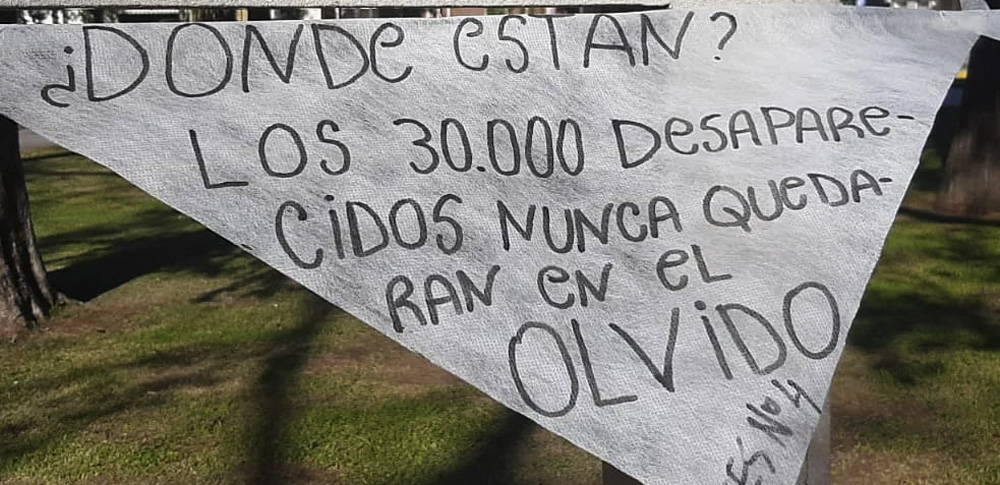 ¿DONDE ESTAN?
LOS 30.000 DESAPARE-
CIDOS NUNCA QUEDA-
RAN EN EL
OLVIDO
Nº 4